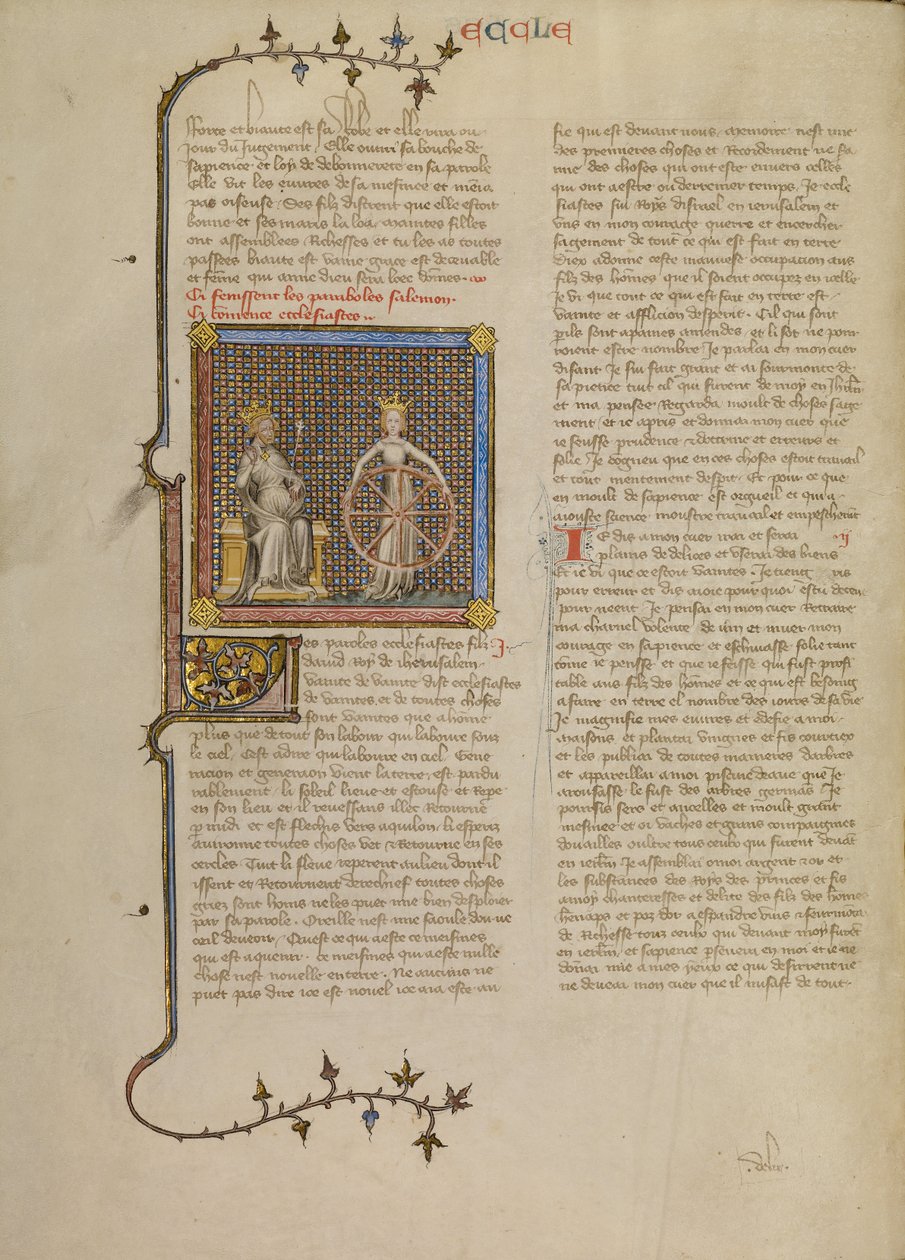 ECCLE
Force et biaute est sa robe et elle rira ou
jour du jugement. Elle ouvri sa bouche de
sapience et loy de debonnerete en sa parole
Elle vit les euvres de sa mesniee et menia
pas oiseuse. Ses filz distrent que elle estoit
bonne et ses maris la loa. maintes filles
ont assemblees Richesses et tu les as toutes
passees biaute est vaine grace est decevable
et feme qui aime dieu sera loee
Ci fenissent les paraboles salemon.
Ci comence ecclesiastes
es paroles ecclesiastes filz J
david Roy de iherusalem.
Vainte de vainte dist ecclesiastes
de vaintes. et de toutes choses
sont vaintes que a home
plus que de tout son labour qui laboure souz
le ciel. Cest adire qui laboure en ciel. Gene
racion et generacion vient la terre est pardu
rablement. li soleil lieve et escouse et Repe
en son lieu et il revessans illec Retourne
p midi et est flechis vers aquilon. li esperiz
avironne toutes choses vet et Retourne en ses
cercles. Tuit li fleuve reperent au lieu dont il
issent et Retournent derechief toutes choses
griez sont homs ne les puet mie bien desploier
par sa parole. Oreille nest mie saoule doir ne
oeil de veoir. Quest ce qui a este ce meismes
qui est a quenir. ce meismes qui a este nulle
chose nest nouvelle en terre. Ne aucuns ne
puet pas dire ice est novel ice a ia este au
sie qui est devant nous. memoire nest mie
des premieres choses et Recordement ne sa
mie des choses qui ont este envers celles
qui ont a estre ou derrenier temps. Je eccle
siastes fui Roys disrael en ierusalem et
vns en mon courage querre et encercher
sagement de tout ce qui est fait en terre
Diex a donne ceste mauvese occupacion aus
filz des homes que il soient occupez en icelle
Je vi que tout ce qui est fait en terre est
vainte et affliction desperit. Cil qui sont
pils sont a paines amendes. et li sot ne pour
roient estre nombre Je parlai en mon cuer
disant Je sui fait grant et ai sourmonte de
sapience tuit cil qui furent de moy en
et ma pensee Regarda moult de choses sage
ment. et ie apris et donnai mon cuer que
ie seusse prudence et doctrine et erreurs et
folie. Je cogneu que en ces choses estoit travail
et tout mentement desperit. Et pour ce que
en moult de sapience est orgueil et qui a
aiouste science moustre travail et empeschement
IE dis a mon cuer irai et serai ij
plains de delices et userai des biens
Et ie vi que ce estoit vaintes. Je tieng ris
pour erreur et dis a ioie pour quoi es tu deceue
pour neent. Je pensai en mon cuer Retraire
ma charnel volente de vin et muer mon
courage en sapience et eschivasse folie tant
come ie pensse et que ie feisse qui fust profi
table aus filz des homes et ce qui est besoing
a faire en terre el nombre des iours de sa vie
Je magnifie mes euvres et edefie a moi
maisons et plantai vingnes et fis courtiex
et les publiai de toutes manieres darbres
et appareillai a moi piscine deaue que Je
arousasse le fust des arbres germans. Je
porsis sers et ancelles et moult grant
mesniee et oi vaches et grans compaignies
douailles oultre tous ceulx qui furent devant
en ierlm Je assemblai a moi argent et or et
les substances des Roys des princes et fis
a moy chanteresses et delite des filz des homes
henaps et poz dor a espandre vins et seurmontai
de Richesse touz ceulx qui devant moy furent
en ierlm. et sapience persevera en moi et ie ne
donai mie a mes yeux ce qui desirrent ne
ne deveai mon cuer que il nusast de tout